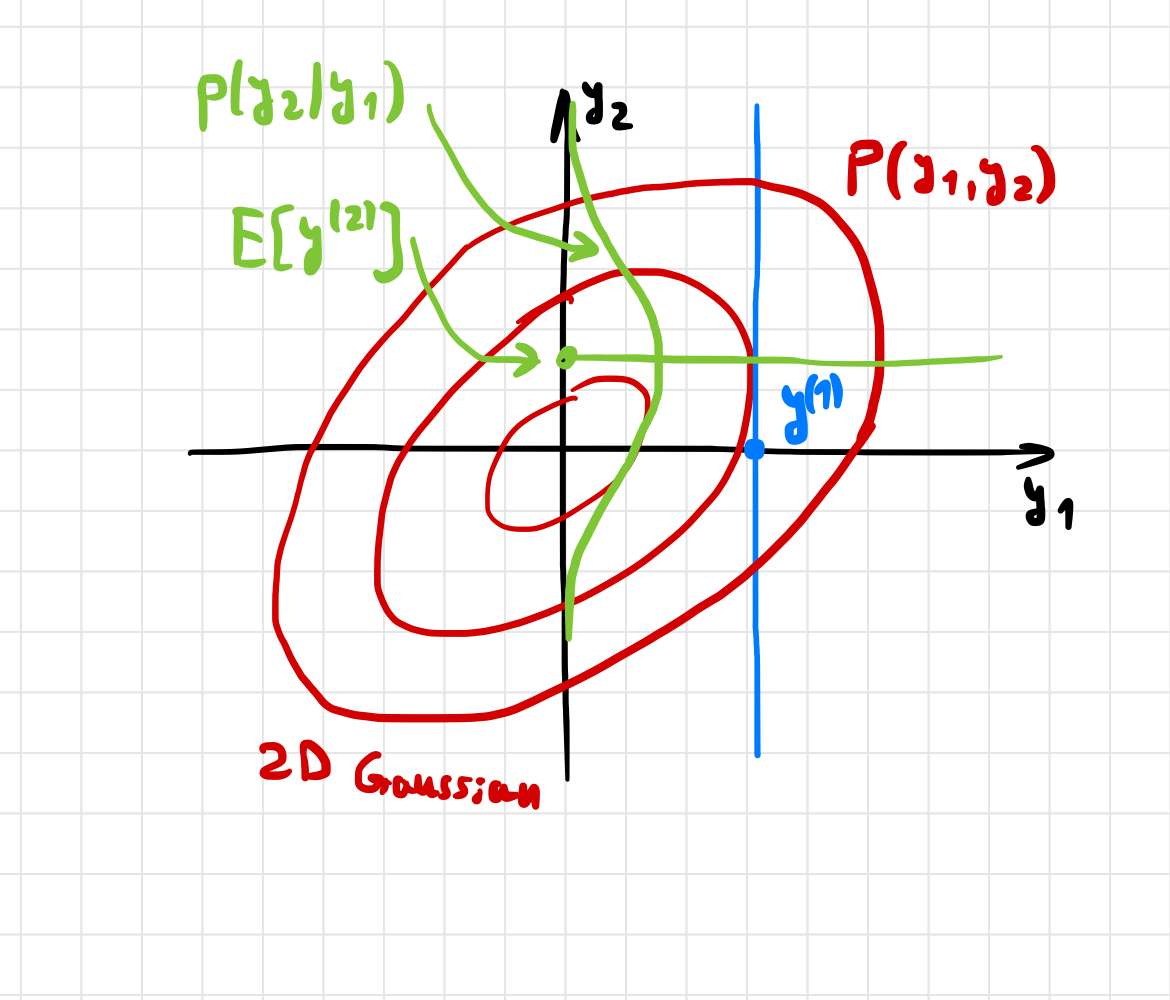 p(y₂|y₁)
y₂
P(y₁,y₂)
E[y⁽²⁾]
y⁽¹⁾
y₁
2D Gaussian